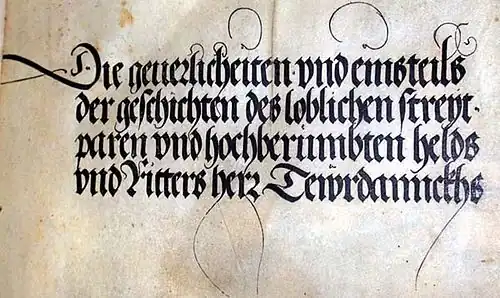 Die geuerlicheiten vnd einsteils
der geschichten des loblichen streyt-
paren vnd hochberümbten helds
vnd Ritters herr Tewrdannckhs